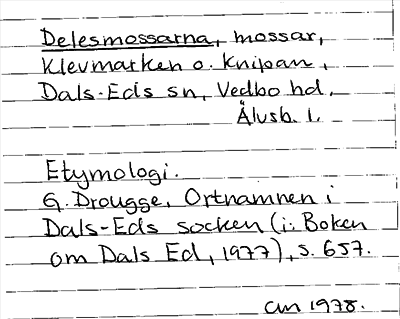 Delesmossarna, mossar,
Klevmarken o. Knipan,
Dals-Eds sn, Vedbo hd,
Älvsb. l.
Etymologi.
G. Drougge, Ortnamnen i
Dals-Eds socken (i: Boken
om Dals Ed, 1977), s. 657.
CM 1978.